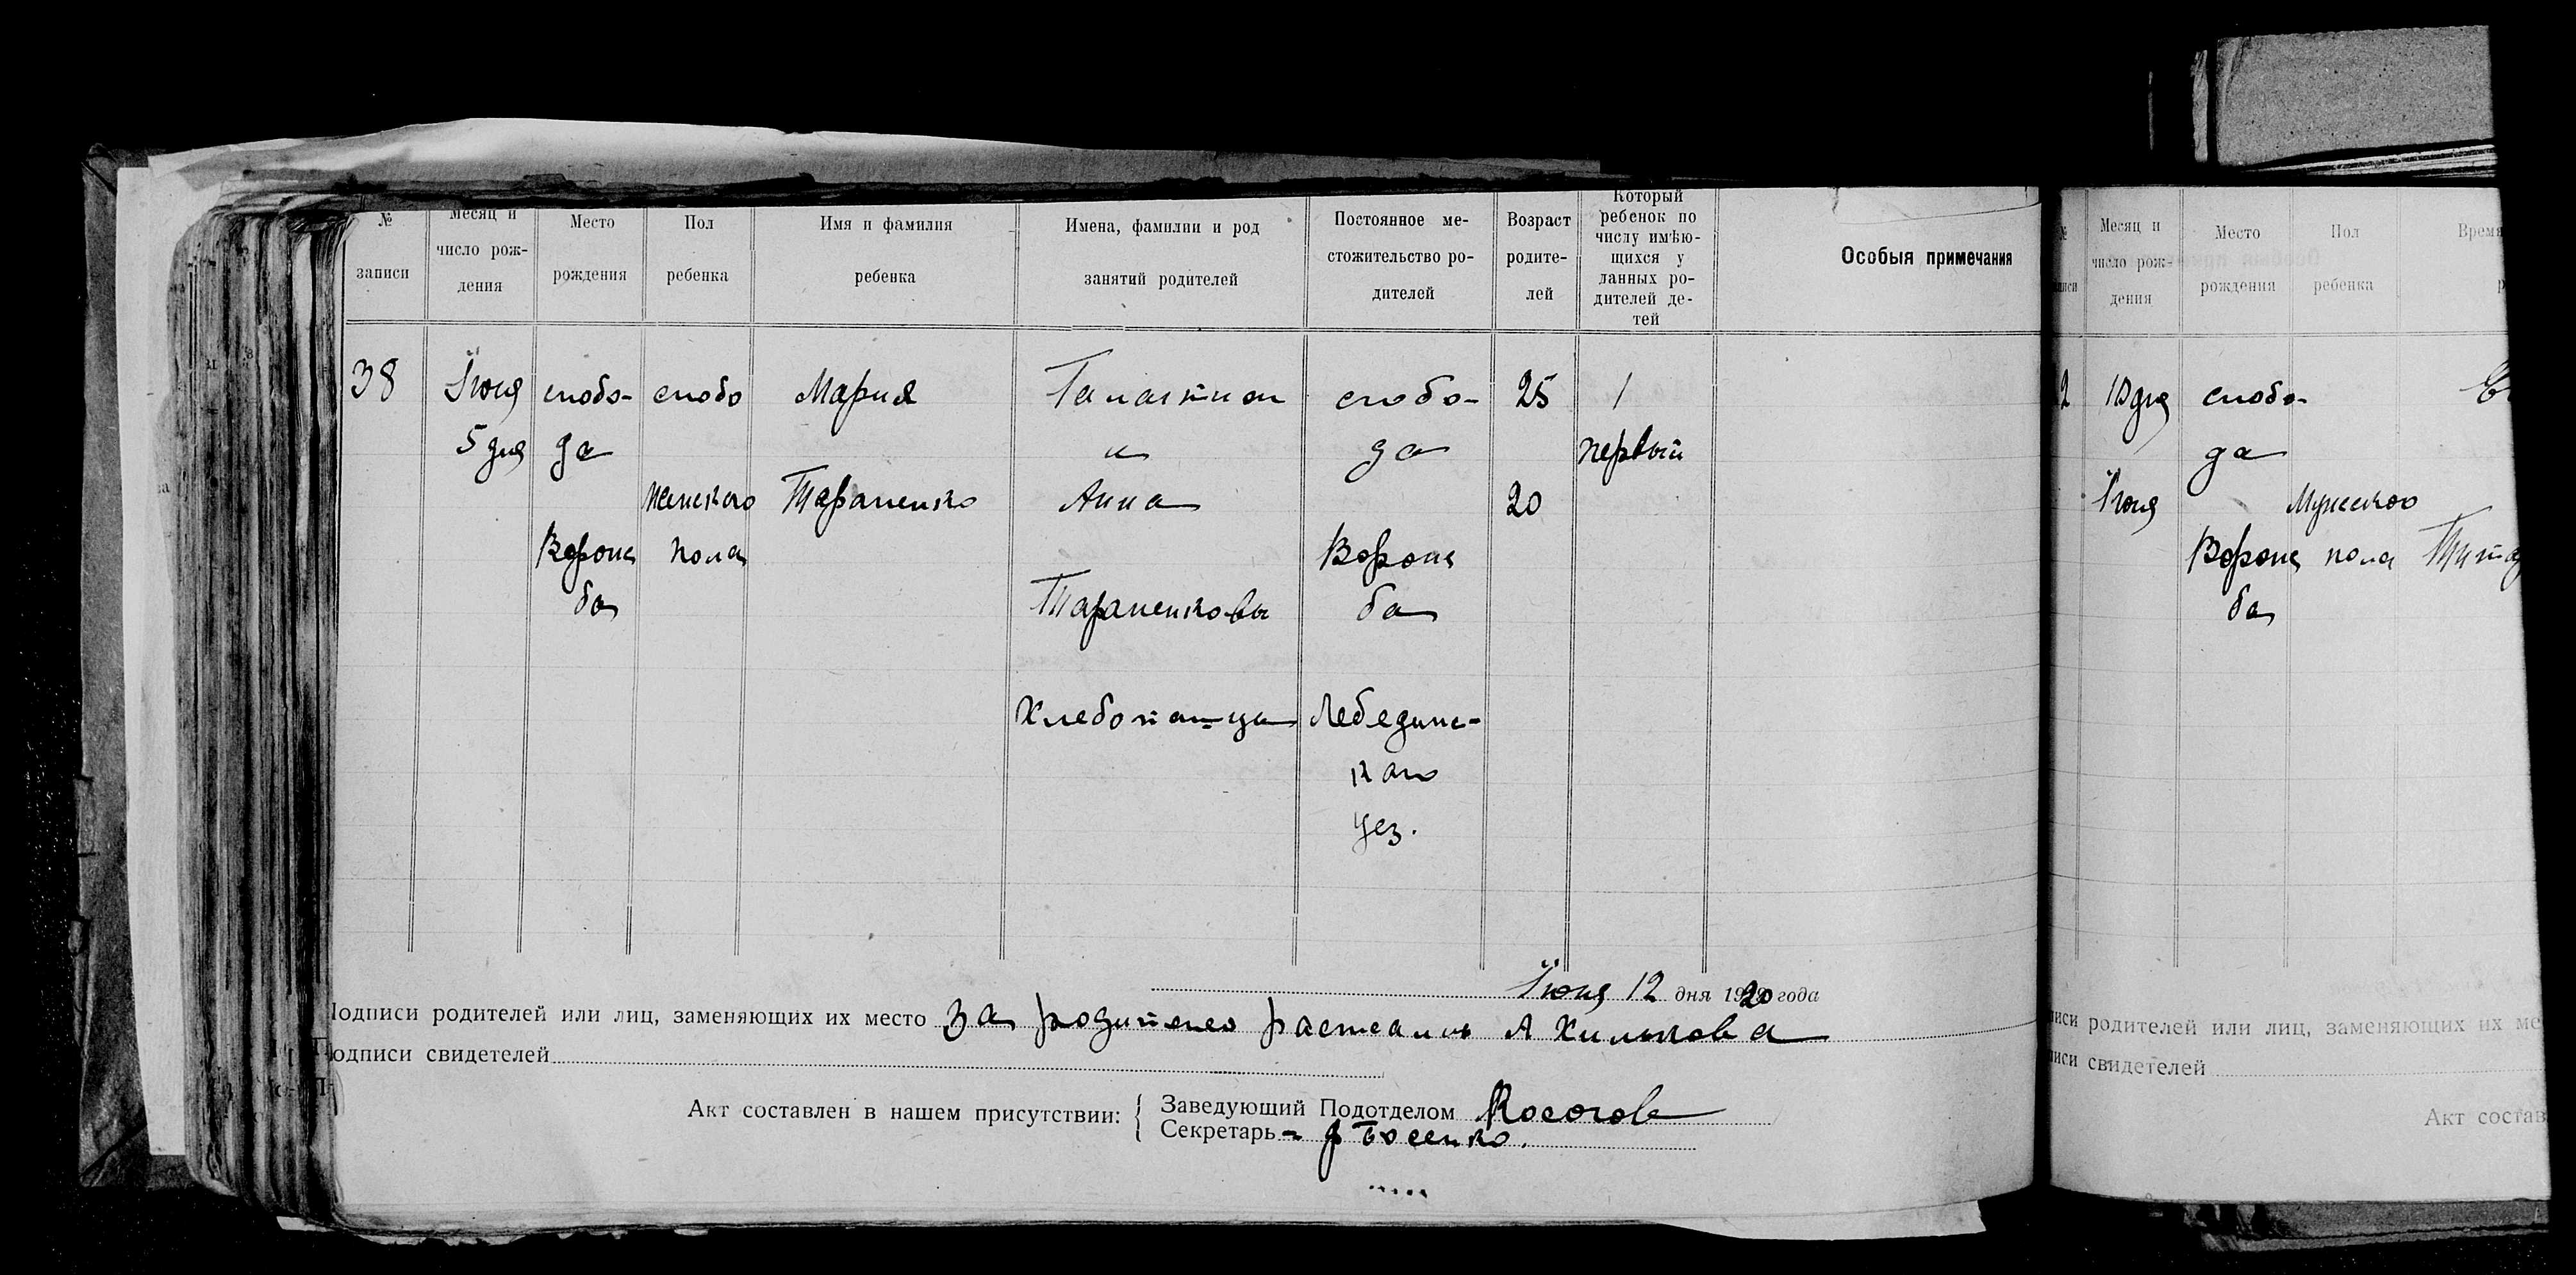 № записи
Месяц и число рождения
Место рождения
Пол ребенка
Имя и фамилия ребенка
Имена, фамилии и род занятий родителей
Постоянное местожительство родителей
Возраст родителей
Который ребенок по числу имѣющихся у данных родителей детей
Особыя примечания
38 Iюня слобо- слобо Мария слобо- 25 1
5 дня да и да первый
женского Тараненко Анна 20
Ворож пола Ворож
ба Тараненковы ба
Хлебопашцы Лебединс-
каго
уез.
Iюня 12 дня 1920 года
Подписи родителей или лиц, заменяющих их место За родителей А Хилькова
Подписи свидетелей
Акт составлен в нашем присутствии:
Заведующий Подотделом
Секретарь
Месяц и число рождения
Место рождения
Пол ребенка
Время
2 10 дня слобо-
да
Iюня Мужского
Ворож пола
ба
писи родителей или лиц, заменяющих их ме
писи свидетелей
Акт состав